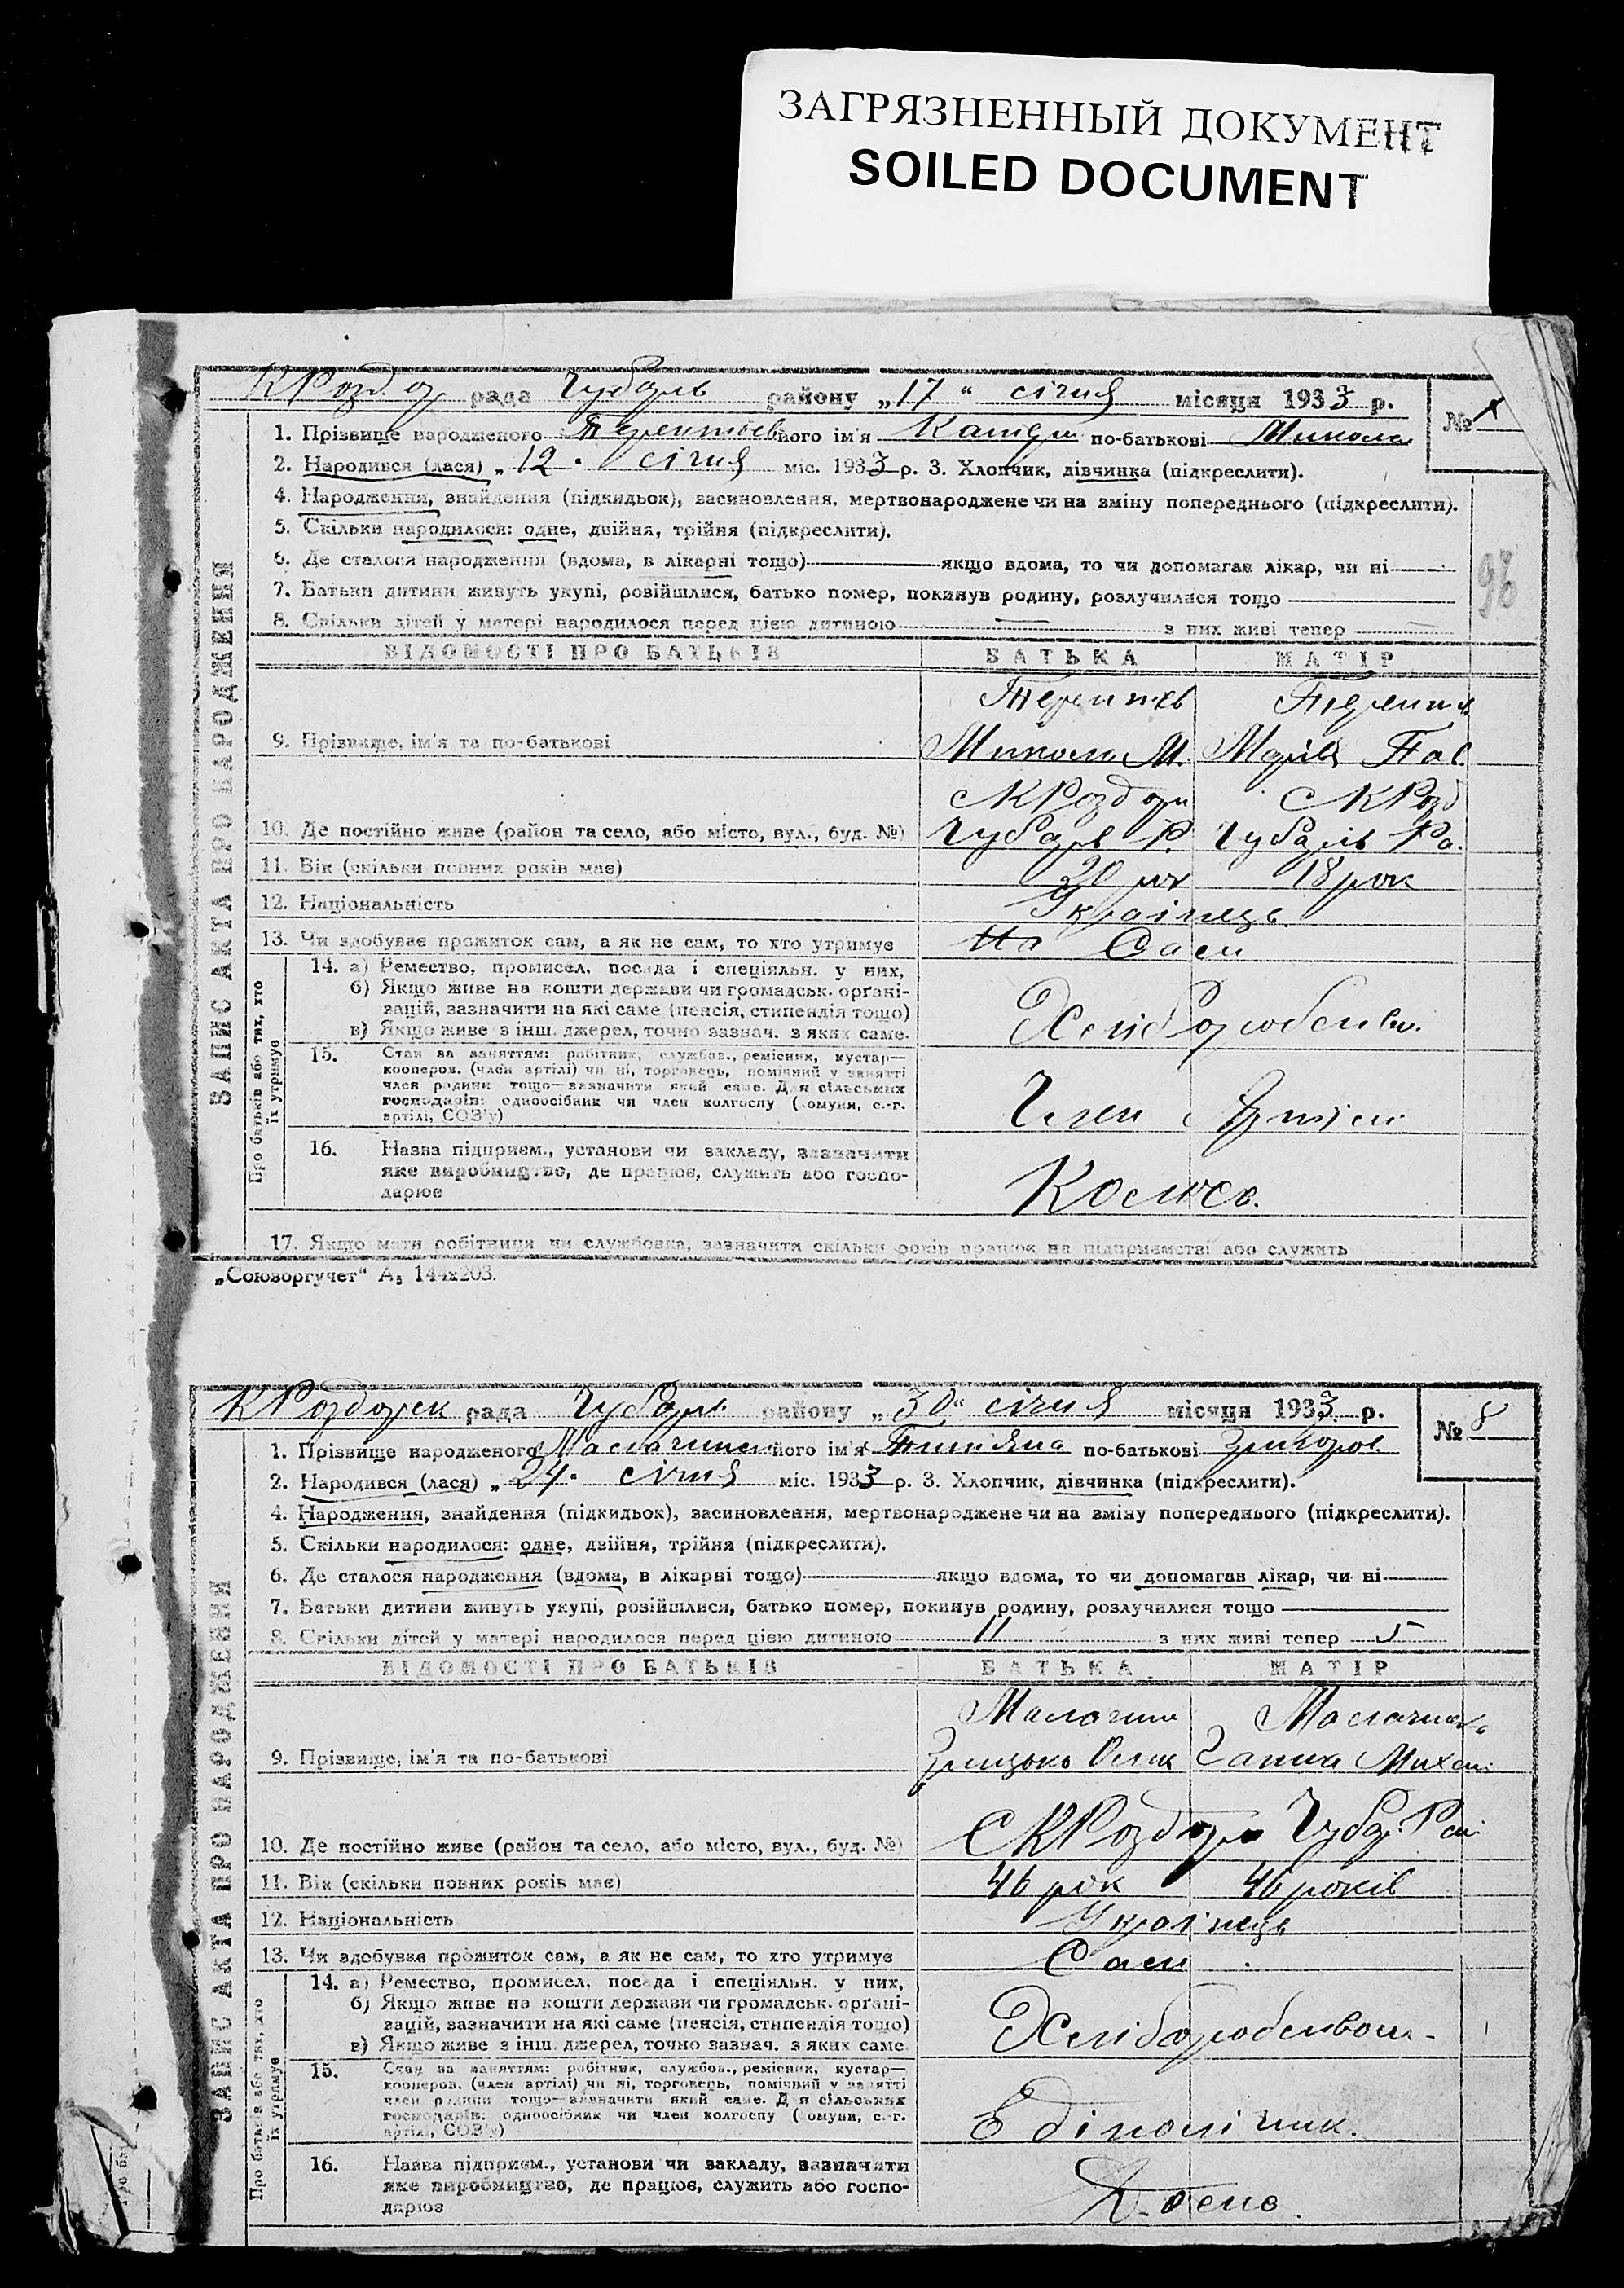 ЗАГРЯЗНЕННЫЙ ДОКУМЕНТ
SOILED DOCUMENT
рада району „17“ січня місяця 1933 р.
№
1. Прізвище народженого його ім'я по-батькові Микола
2. Народився (лася) „12“ січня міс. 1933 р. 3. Хлопчик, дівчинка (підкреслити).
4. Народження, знайдення (підкидьок), засиновлення, мертвонароджене чи на зміну попереднього (підкреслити).
5. Скільки народилося: одне, двійня, трійня (підкреслити).
6. Де сталося народження (вдома, в лікарні тощо) якщо вдома, то чи допомагав лікар, чи ні
7. Батьки дитини живуть укупі, розійшлися, батько помер, покинув родину, розлучилися тощо
8. Скільки дітей у матері народилося перед цією дитиною з них живі тепер
96
ЗАПИС АКТА ПРО НАРОДЖЕННЯ
ВІДОМОСТІ ПРО БАТЬКІВ БАТЬКА МАТІР
9. Прізвище, ім'я та по-батькові Микола М. Марія Пав
10. Де постійно живе (район та село, або місто, вул., буд. №)
11. Вік (скільки повних років має) 20 рок 18 рок
12. Національність Українець
13. Чи здобуває прожиток сам, а як не сам, то хто утримує Сам
Про батьків або тих, хто їх утримує
14. а) Ремество, промисел, посада і спеціяльн. у них,
б) Якщо живе на кошти держави чи громадськ. органі-
зацій, зазначити на які саме (пенсія, стипендія тощо)
в) Якщо живе з інш. джерел, точно зазнач. з яких саме.
15. Стан за заняттям: робітник, службов., ремісник, кустар—
кооперов. (член артілі) чи ні, торговець, помічний у занятті
член родини тощо—зазначити який саме. Для сільських
господарів: одноосібник чи член колгоспу (комуни, с.-г.
артілі, СОЗ'у)
Член Артілі
16. Назва підприєм., установи чи закладу, зазначити
яке виробництво, де працює, служить або госпо-
дарює
17. Якщо мати робітниця чи службовка, зазначити скільки років працює на підприємстві або служить
„Союзоргучет“ А5 144х203.
рада району „30“ січня місяця 1933 р.
№ 8
1. Прізвище народженого його ім'я по-батькові Григоров
2. Народився (лася) „24“ січня міс. 1933 р. 3. Хлопчик, дівчинка (підкреслити).
4. Народження, знайдення (підкидьок), засиновлення, мертвонароджене чи на зміну попереднього (підкреслити).
5. Скільки народилося: одне, двійня, трійня (підкреслити).
6. Де сталося народження (вдома, в лікарні тощо) якщо вдома, то чи допомагав лікар, чи ні
7. Батьки дитини живуть укупі, розійшлися, батько помер, покинув родину, розлучилися тощо
8. Скільки дітей у матері народилося перед цією дитиною 11 з них живі тепер 5
ЗАПИС АКТА ПРО НАРОДЖЕННЯ
ВІДОМОСТІ ПРО БАТЬКІВ БАТЬКА МАТІР
9. Прізвище, ім'я та по-батькові Грицько Ганна
10. Де постійно живе (район та село, або місто, вул., буд. №)
11. Вік (скільки повних років має) 46 рок 46 років
12. Національність Українець
13. Чи здобуває прожиток сам, а як не сам, то хто утримує Сам
Про батьків або тих, хто їх утримує
14. а) Ремество, промисел, посада і спеціяльн. у них,
б) Якщо живе на кошти держави чи громадськ. органі-
зацій, зазначити на які саме (пенсія, стипендія тощо)
в) Якщо живе з інш. джерел, точно зазнач. з яких саме.
15. Стан за заняттям: робітник, службов., ремісник, кустар—
кооперов. (член артілі) чи ні, торговець, помічний у занятті
член родини тощо—зазначити який саме. Для сільських
господарів: одноосібник чи член колгоспу (комуни, с.-г.
артілі, СОЗ'у)
16. Назва підприєм., установи чи закладу, зазначити
яке виробництво, де працює, служить або госпо-
дарює